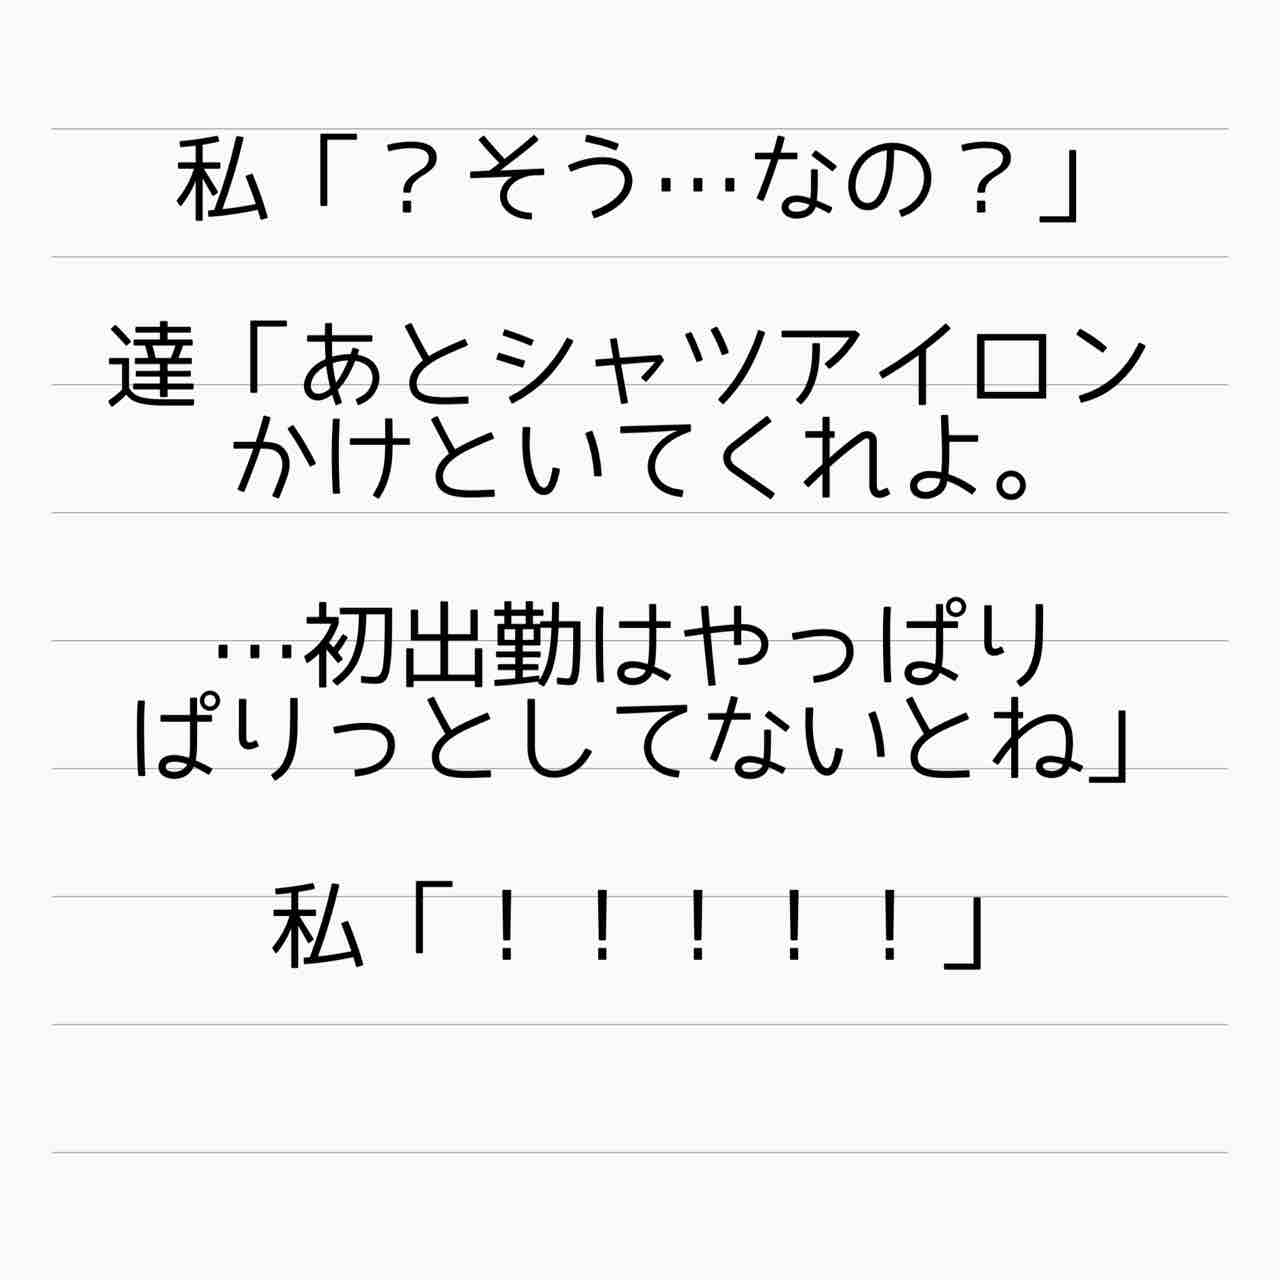 私「？そう…なの？」
達「あとシャツアイロン
かけといてくれよ。
…初出勤はやっぱり
ぱりっとしてないとね」
私「！！！！！」